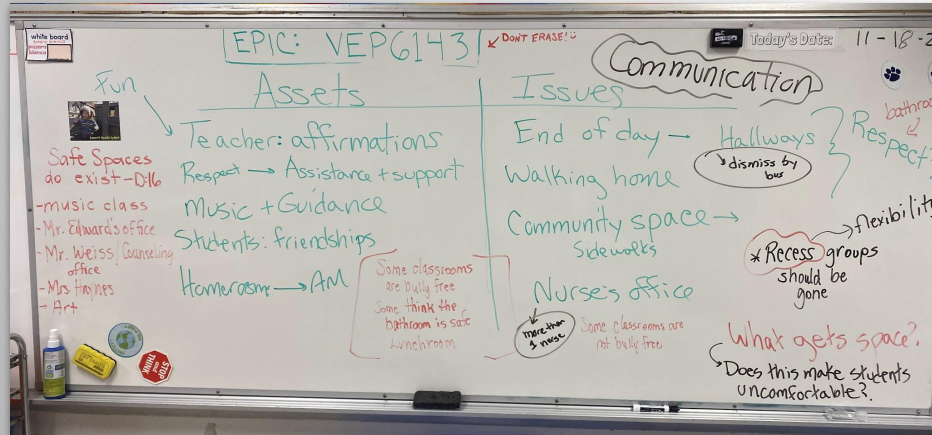 white board
pizarra
blanca
EPIC: VEP6143
DON'T ERASE!
Today's Date:
11-18-2
Fun
Assets
Teacher: affirmations
Respect → Assistance + support
Music + Guidance
Students: friendships
Homeroom: → AM
Safe Spaces
do exist - D:16
- music class
- Mr. Edward's office
- Mr. Weiss/Counseling
office
- Mrs Haynes
- Art
Some classrooms
are bully free
Some think the
bathroom is safe
Lunchroom
Issues
Communication
End of day → Hallways
dismiss by
bus
Walking home
Community space →
Sidewalks
Nurse's office
more than
1 nurse
Some classrooms are
not bully free
bathroo
Respect?
flexibility
* Recess groups
should be
gone
What gets space?
Does this make students
uncomfortable?
STOP
and
THINK